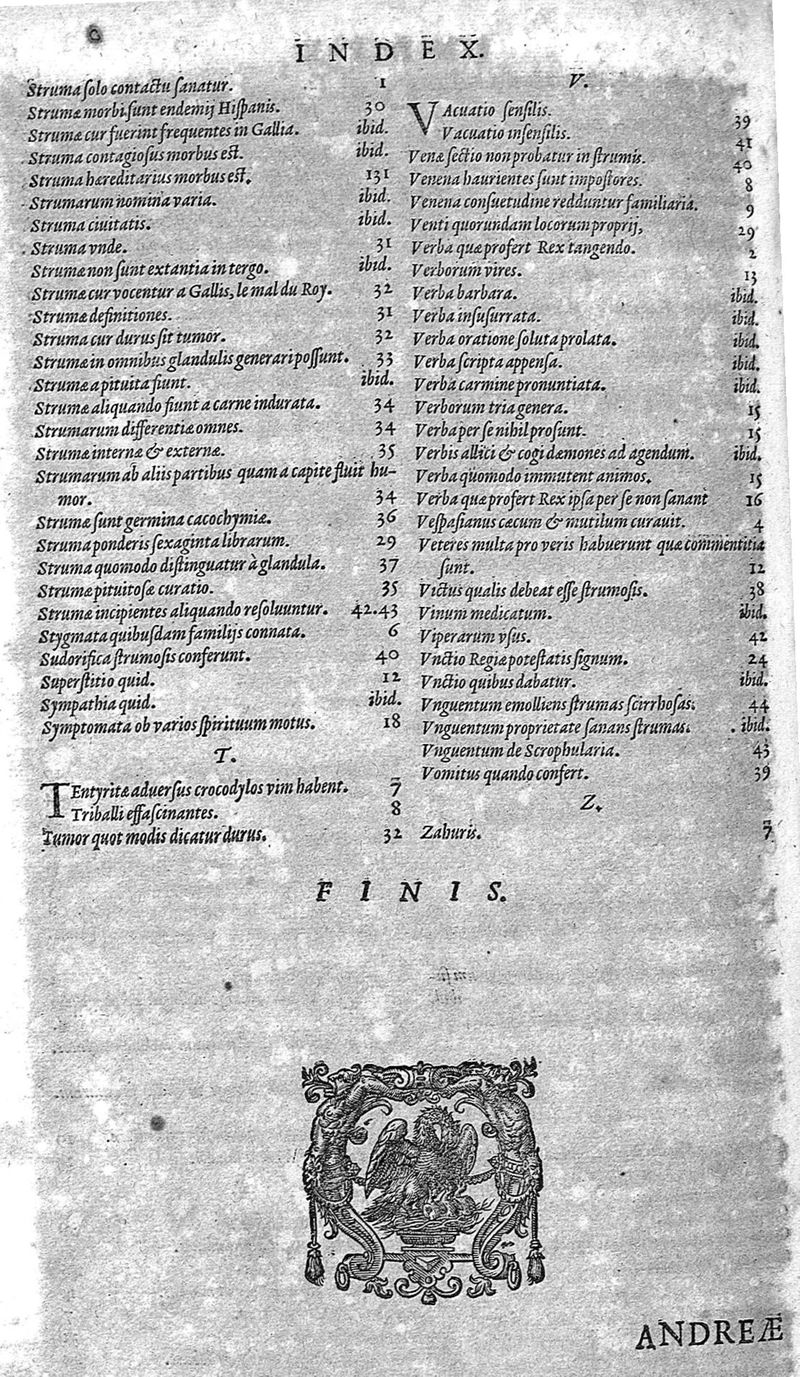 INDEX.
Struma solo contactu sanatur. 1
Strumæ morbi sunt endemij Hispanis. 30
Strumæ cur fuerint frequentes in Gallia. ibid.
Struma contagiosus morbus est. ibid.
Struma hæreditarius morbus est. 131
Strumarum nomina varia. ibid.
Struma ciuitatis. ibid.
Struma vnde. 31
Strumæ non sunt extantia in tergo. ibid.
Strumæ cur vocentur a Gallis, le mal du Roy. 32
Strumæ definitiones. 31
Struma cur durus sit tumor. 32
Strumæ in omnibus glandulis generari possunt. 33
Strumæ a pituita fiunt. ibid.
Strumæ aliquando fiunt a carne indurata. 34
Strumarum differentiæ omnes. 34
Strumæ internæ & externæ. 35
Strumarum ab aliis partibus quam a capite fluit hu-
mor. 34
Strumæ sunt germina cacochymiæ. 36
Struma ponderis sexaginta librarum. 29
Struma quomodo distinguatur à glandula. 37
Strumæ pituitosæ curatio. 35
Strumæ incipientes aliquando resoluuntur. 42.43
Stygmata quibusdam familijs connata. 6
Sudorifica strumosis conferunt. 40
Superstitio quid. 12
Sympathia quid. ibid.
Symptomata ob varios spirituum motus. 18
T.
TEntyritæ aduersus crocodylos vim habent. 7
Triballi effascinantes. 8
Tumor quot modis dicatur durus. 32
V.
VAcuatio sensilis. 39
Vacuatio insensilis. 41
Venæ sectio non probatur in strumis. 40
Venena haurientes sunt impostores. 8
Venena consuetudine redduntur familiaria. 9
Venti quorundam locorum proprij, 29
Verba quæ profert Rex tangendo. 2
Verborum vires. 13
Verba barbara. ibid.
Verba insusurrata. ibid.
Verba oratione soluta prolata. ibid.
Verba scripta appensa. ibid.
Verba carmine pronuntiata. ibid.
Verborum tria genera. 15
Verba per se nihil prosunt. 15
Verbis allici & cogi dæmones ad agendum. ibid.
Verba quomodo immutent animos. 15
Verba quæ profert Rex ipsa per se non sanant 16
Vespasianus cæcum & mutilum curauit. 4
Veteres multa pro veris habuerunt quæ commentitia
sunt. 12
Victus qualis debeat esse strumosis. 38
Vinum medicatum. ibid.
Viperarum vsus. 42
Vnctio Regiæ potestatis signum. 24
Vnctio quibus dabatur. ibid.
Vnguentum emolliens strumas scirrhosas. 44
Vnguentum proprietate sanans strumas. ibid.
Vnguentum de Scrophularia. 43
Vomitus quando confert. 39
Z.
Zahuris. 7
FINIS.
ANDREÆ